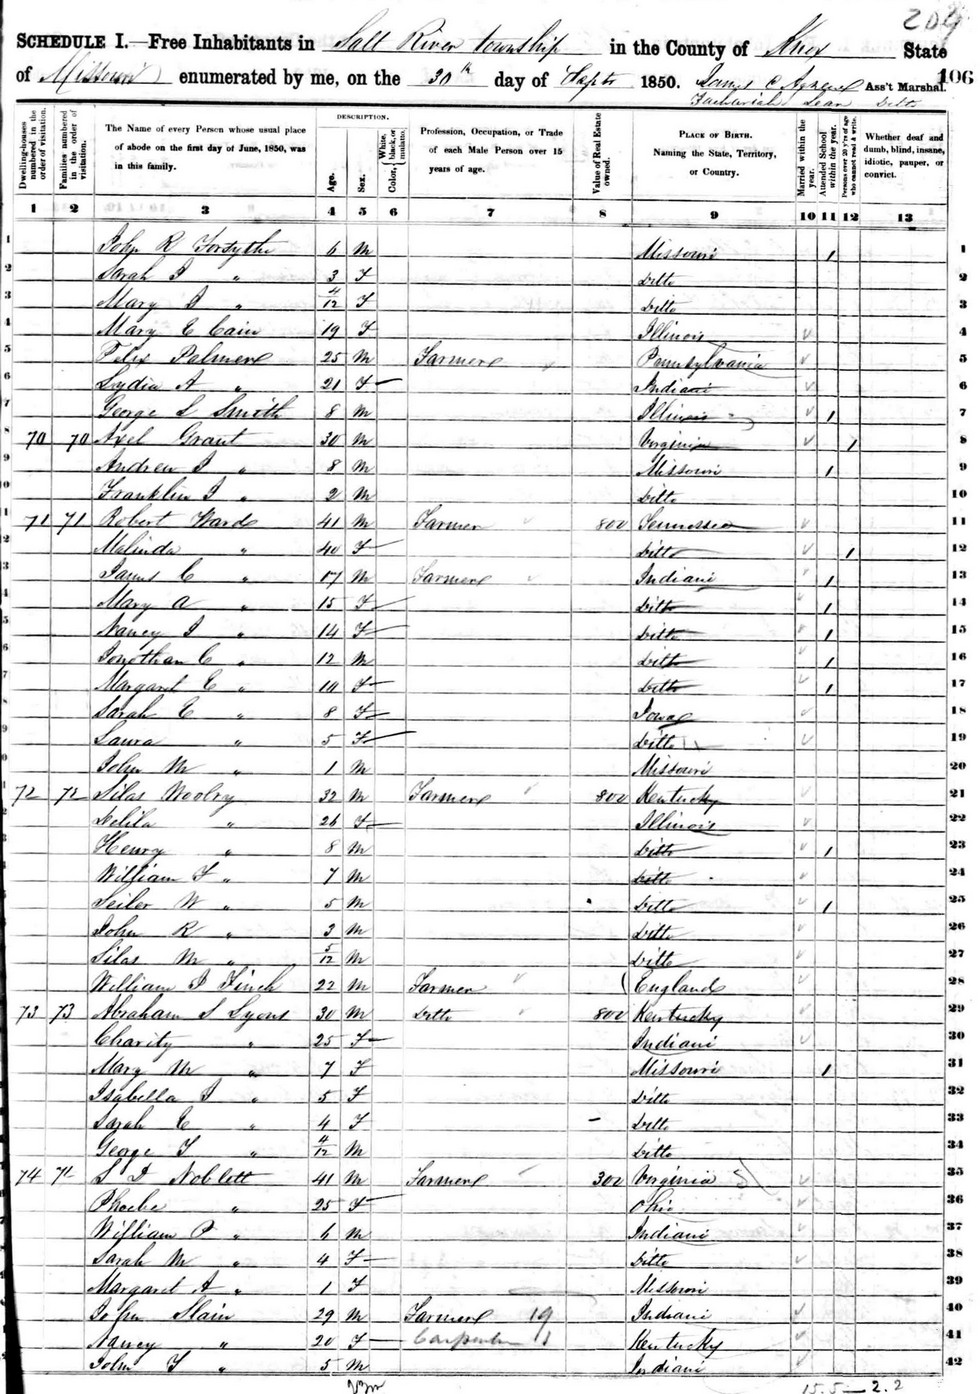 204
SCHEDULE I.—Free Inhabitants in Salt River township in the County of Knox State
of Missouri enumerated by me, on the 30th day of Septr 1850. Ass't Marshal. 106
Ditto
Dwelling-houses numbered in the order of visitation.
Families numbered in the order of visitation.
The Name of every Person whose usual place of abode on the first day of June, 1850, was in this family.
DESCRIPTION.
Age.
Sex.
Color, White, black, or mulatto.
Profession, Occupation, or Trade of each Male Person over 15 years of age.
Value of Real Estate owned.
PLACE OF BIRTH. Naming the State, Territory, or Country.
Married within the year.
Attended School within the year.
Persons over 20 y'rs of age who cannot read & write.
Whether deaf and dumb, blind, insane, idiotic, pauper, or convict.
1 2 3 4 5 6 7 8 9 10 11 12 13
1 John R Forsythe 6 M Missouri 1 1
2 Sarah J " 3 F Ditto 2
3 Mary J " 4/12 F Ditto 3
4 Mary E Cain 19 F Illinois 4
5 Felix Palmer 25 M Farmer Pennsylvania 5
6 Lydia A " 21 F Indiani 6
7 George S Smith 8 M Illinois 1 7
8 70 70 Axel Grant 30 M Virginia 1 8
9 Andrew J " 8 M Missouri 1 9
10 Franklin J " 2 M Ditto 10
11 71 71 Robert Ward 41 M Farmer 800 Tennessee 11
12 Malinda " 40 F Ditto 1 12
13 James C " 17 M Farmer Indiani 1 13
14 Mary A " 15 F Ditto 1 14
15 Nancy J " 14 F Ditto 1 15
16 Jonothan C " 12 M Ditto 1 16
17 Margaret E " 10 F Ditto 1 17
18 Sarah E " 8 F Iowa 18
19 Laura " 5 F Ditto 19
20 John M " 1 M Missouri 20
21 72 72 Silas 32 M Farmer 800 Kentucky 21
22 Delila " 26 F Illinois 22
23 Henry " 8 M Ditto 1 23
24 William F " 7 M Ditto 24
25 W " 5 M Ditto 1 25
26 John R " 3 M Ditto 26
27 Silas M " 5/12 M Ditto 27
28 William J Finch 22 M Farmer England 28
29 73 73 Abraham S Lyons 30 M Ditto 800 Kentucky 29
30 Charity " 25 F Indiani 30
31 Mary M " 7 F Missouri 1 31
32 Isabella J " 5 F Ditto 32
33 Sarah E " 4 F Ditto 33
34 George T " 4/12 M Ditto 34
35 74 74 S D Noblett 41 M Farmer 300 Virginia 35
36 Phoebe " 25 F Ohio 36
37 William P " 6 M Indiani 37
38 Sarah M " 4 F Ditto 38
39 Margaret A " 1 F Missouri 39
40 John Slain 29 M Farmer 19 Indiani 40
41 Nancy " 20 F Carpenter 1 Kentucky 41
42 John F " 5 M Indiani 42
15.5 — 2.2